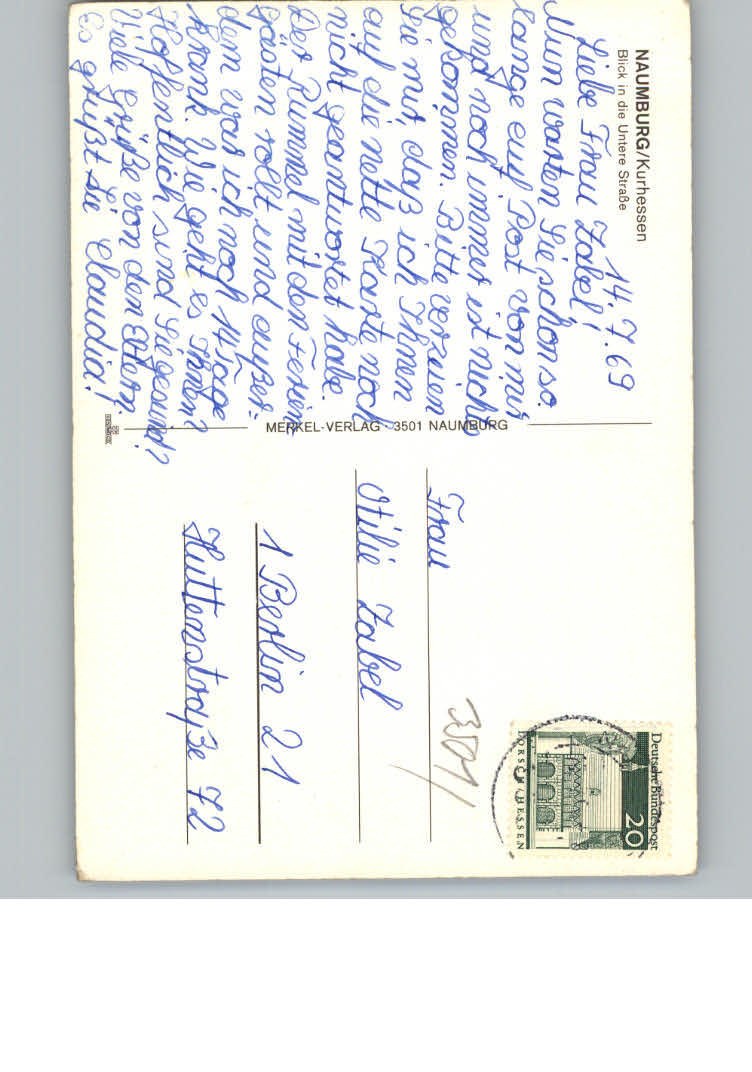 NAUMBURG/Kurhessen
Blick in die Untere Straße
14.7.69
Liebe Frau Zabel!
Nun warten Sie schon so
lange auf Post von mir
und noch immer ist nichts
gekommen. Bitte verzeien
Sie mir, daß ich Ihnen
auf die nette Karte noch
nicht geantwortet habe.
Der Rummel mit den Ferien
gästen rollt und außer-
dem war ich noch 14 Tage
krank. Wie geht es Ihnen?
Hoffentlich sind Sie gesund?
Viele Grüße von den Eltern.
Es grüßt Sie Claudia!
MERKEL-VERLAG · 3501 NAUMBURG
Deutsche Bundespost
20
LORSCH / HESSEN
3501
Frau
Otilie Zabel
1 Berlin 21
Huttenstraße 72